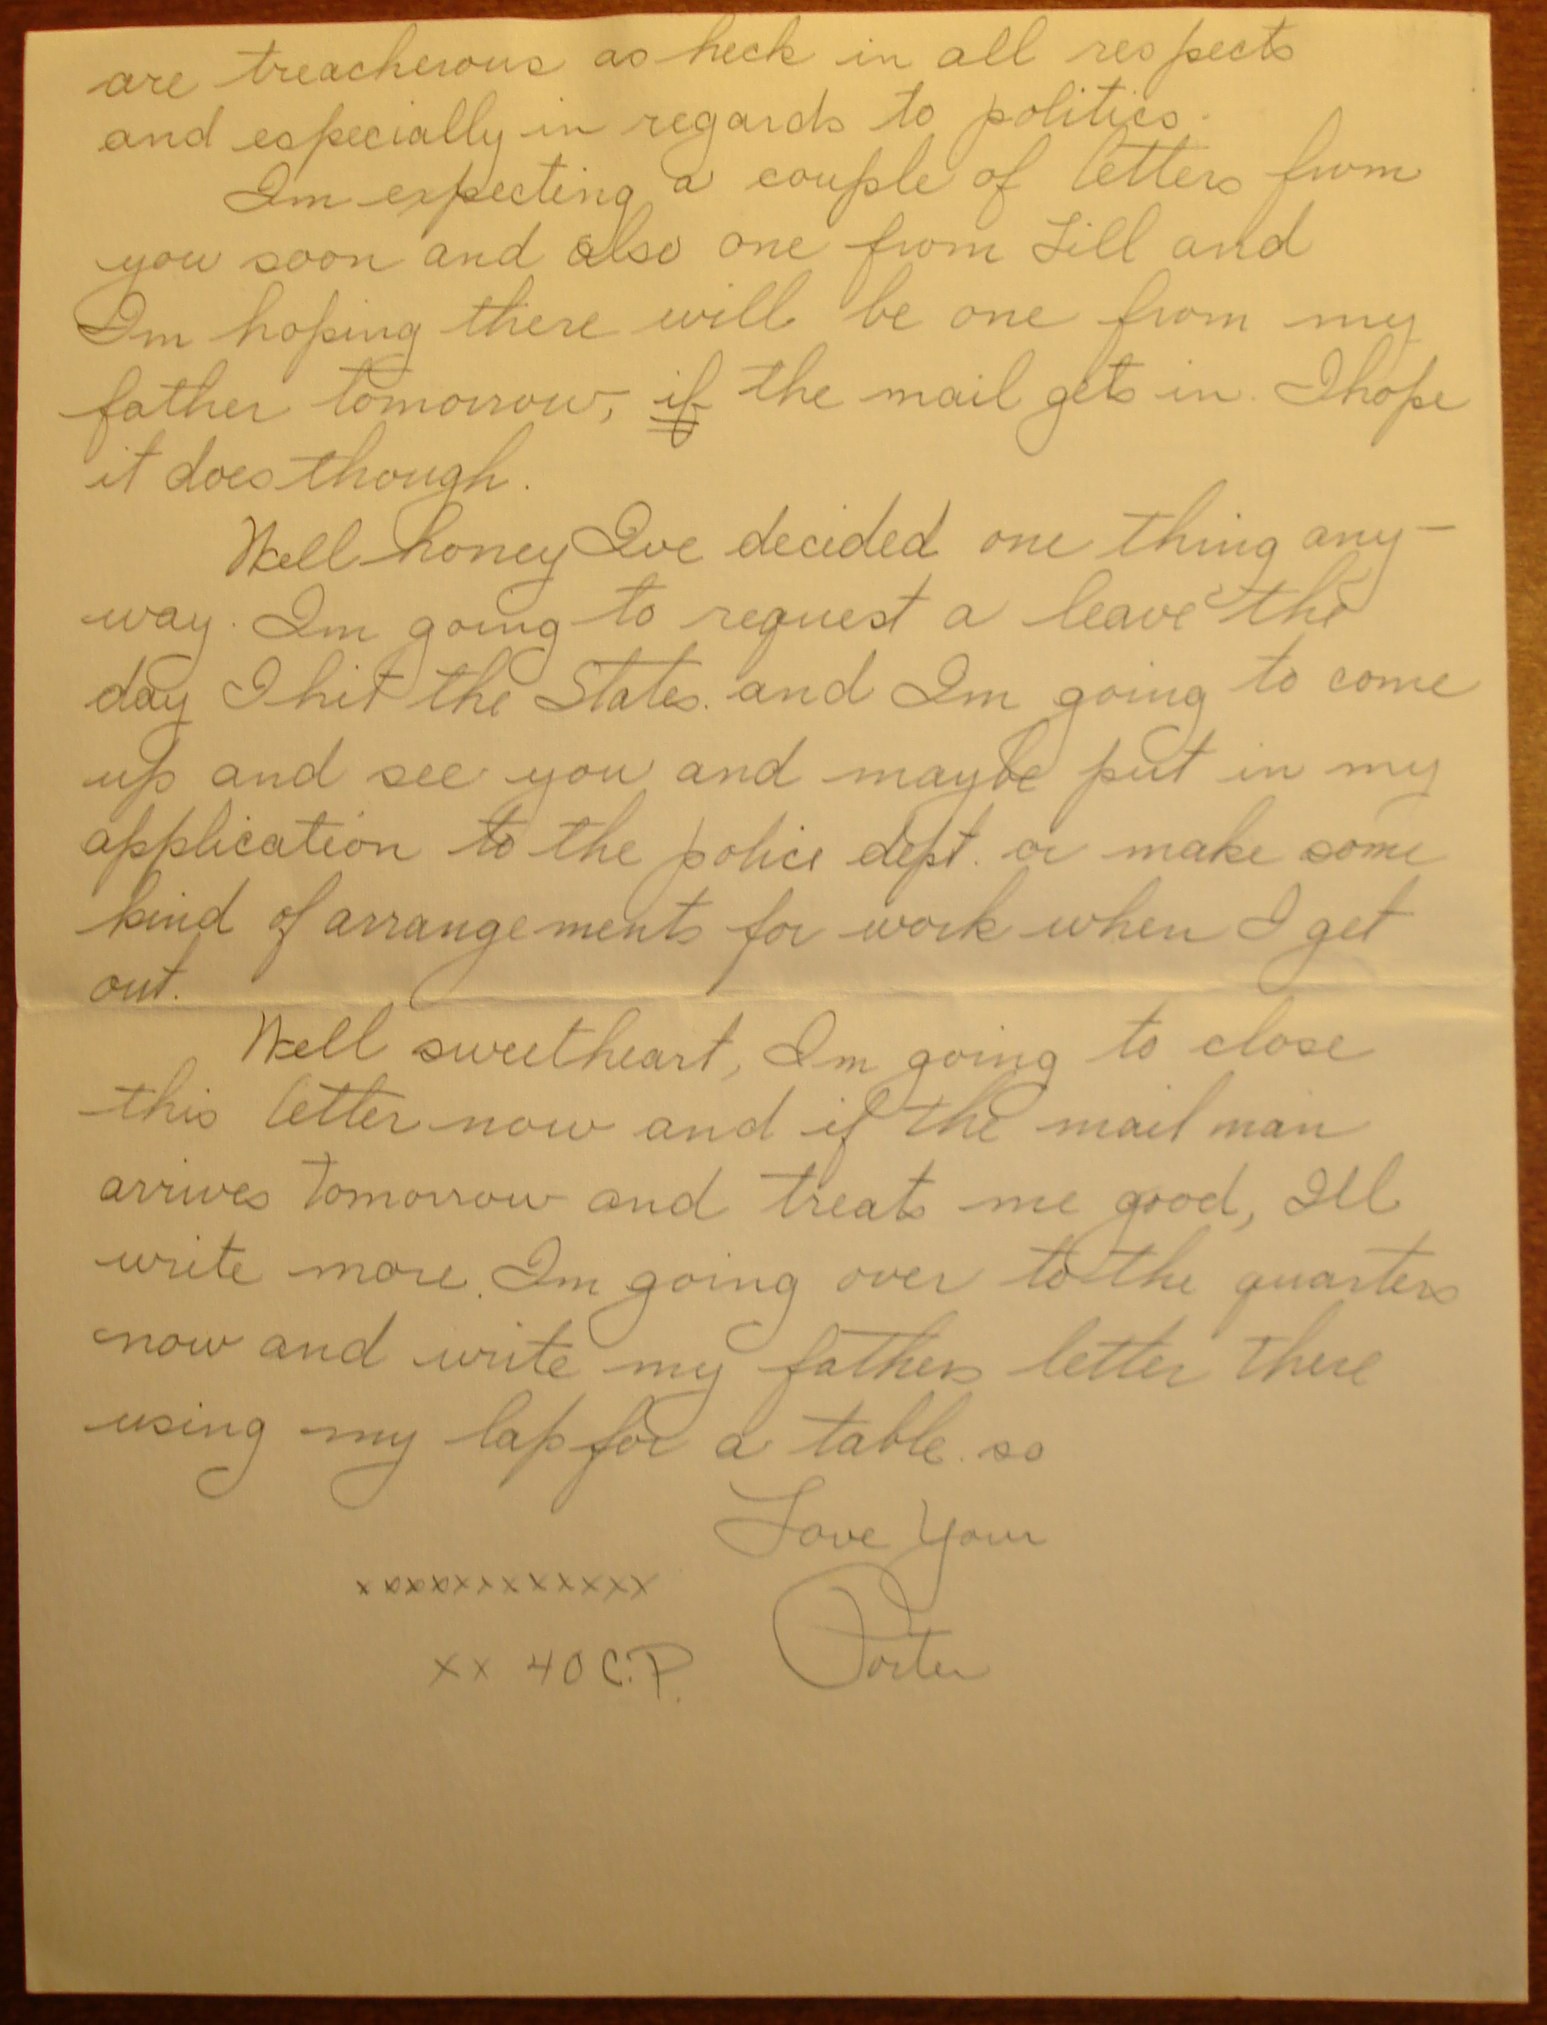 are treacherous as heck in all respects
and especially in regards to politics.
Im expecting a couple of letters from
you soon and also one from Lill and
Im hoping there will be one from my
father tomorrow, if the mail gets in. I hope
it does though.
Well honey Ive decided one thing any-
way. Im going to request a leave the
day I hit the States. and Im going to come
up and see you and maybe put in my
application to the police dept. or make some
kind of arrangements for work when I get
out.
Well sweetheart, Im going to close
this letter now and if the mail man
arrives tomorrow and treats me good, Ill
write more. Im going over to the quarters
now and write my fathers letter there
using my lap for a table. so
Love Your
xxxxxxxxxxxxx
xx 40 C.P. Porter